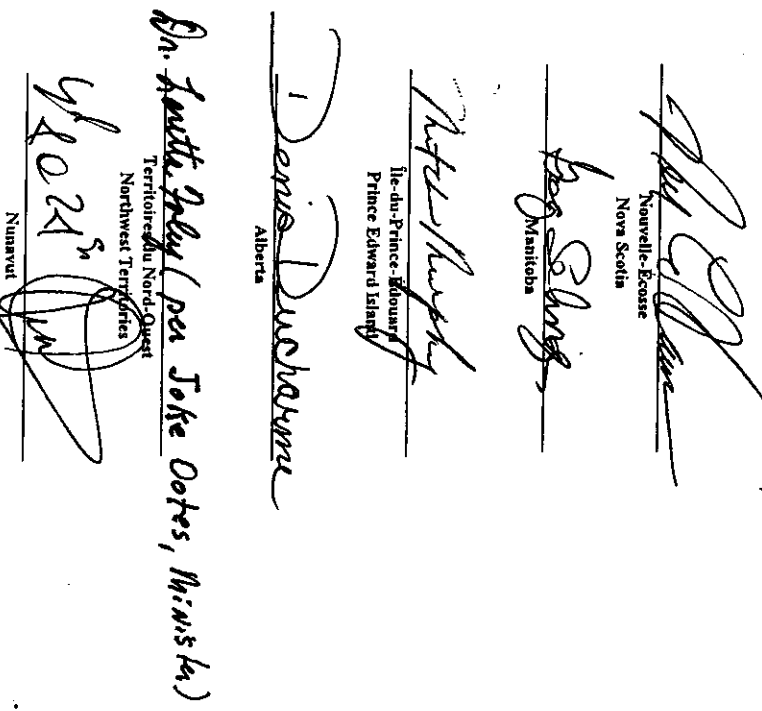 Nouvelle-Écosse
Nova Scotia
Greg Selinger
Manitoba
Mitch Murphy
Île-du-Prince-Édouard
Prince Edward Island
Denis Ducharme
Alberta
Dr. Lorette Foley (per Jake Ootes, Minister)
Territoires du Nord-Ouest
Northwest Territories
Nunavut